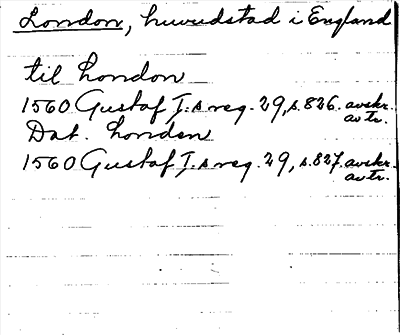 London, huvudstad i England
til London
1560 Gustaf I:s reg. 29, s. 826. avskr.
av tr.
Dat. London
1560 Gustaf I:s reg. 29, s. 827. avskr.
av tr.